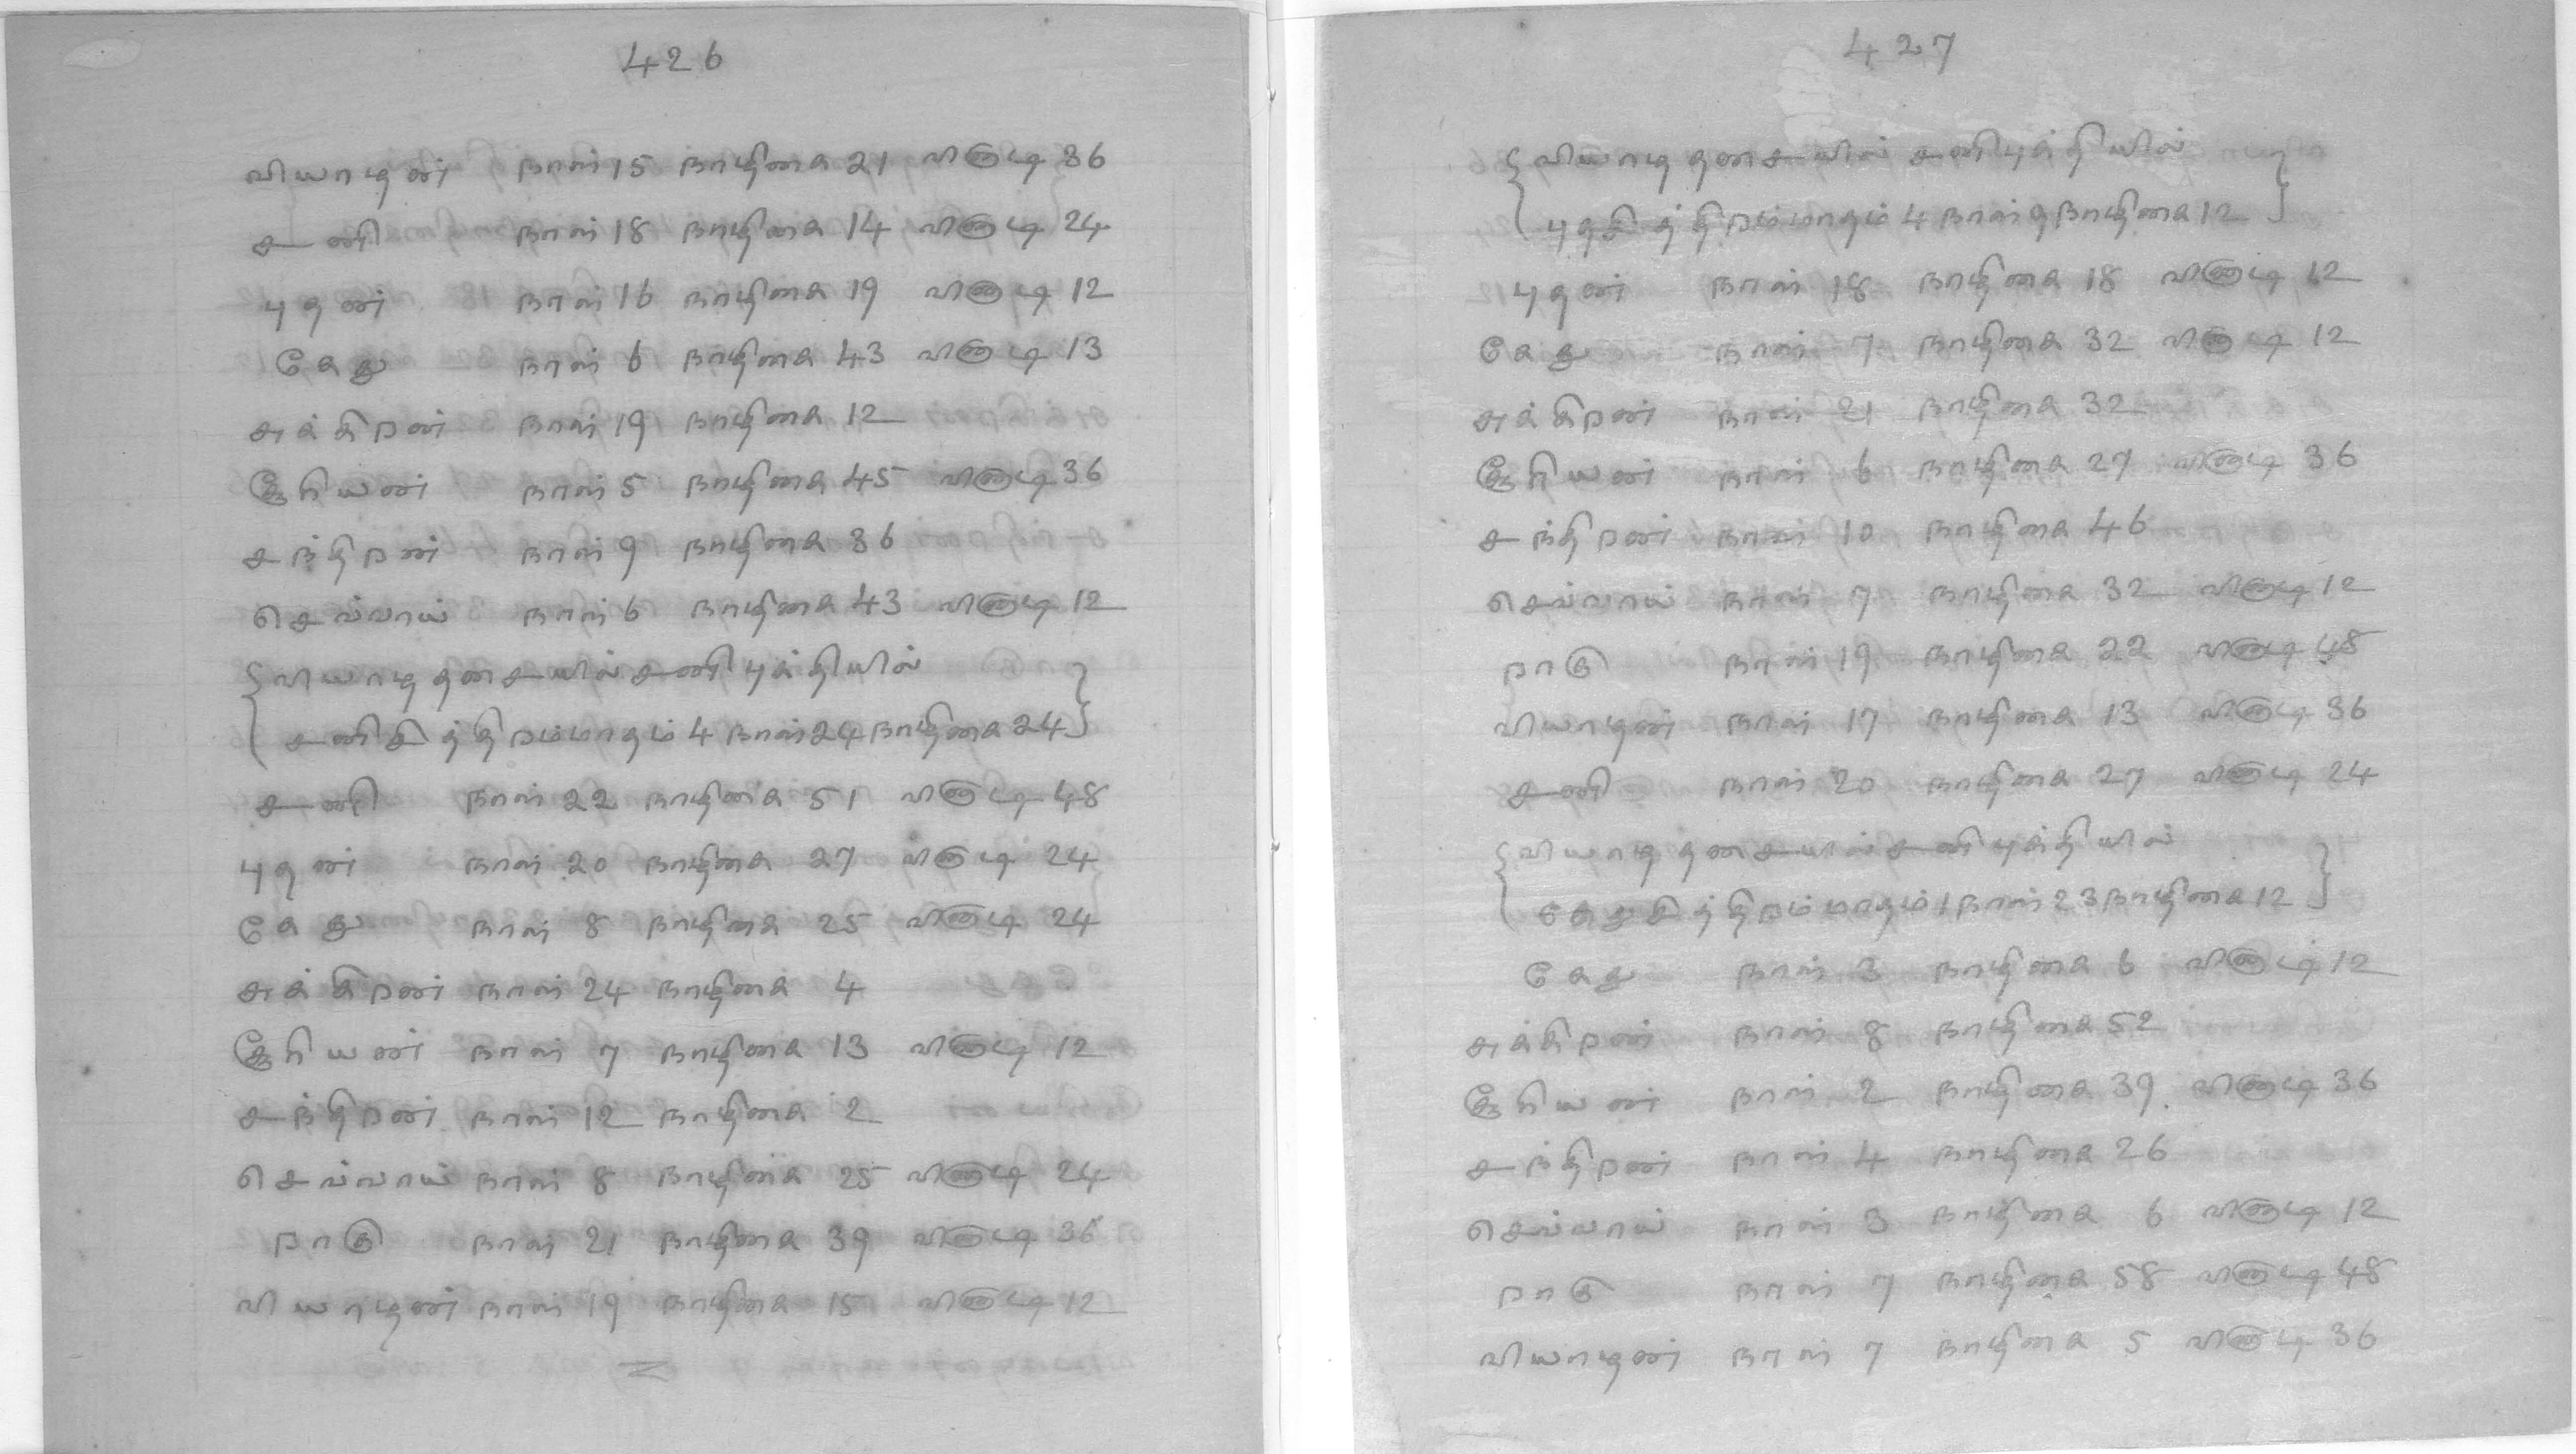 426
வியாழன் நாள் 15 நாழிகை 21 விநாடி 36
சனி நாள் 18 நாழிகை 14 விநாடி 24
புதன் நாள் 16 நாழிகை 19 விநாடி 12
கேது நாள் 6 நாழிகை 43 விநாடி 13
சுக்கிறன் நாள் 19 நாழிகை 12
சூரியன் நாள் 5 நாழிகை 45 விநாடி 36
சந்திறன் நாள் 9 நாழிகை 36
செவ்வாய் நாள் 6 நாழிகை 43 விநாடி 12
{வியாழ தசையில் சனி புக்தியில்
சனி சித்திறம் மாதம் 4 நாள் 24 நாழிகை 24}
சனி நாள் 22 நாழிகை 51 விநாடி 48
புதன் நாள் 20 நாழிகை 27 விநாடி 24
கேது நாள் 8 நாழிகை 25 விநாடி 24
சுக்கிறன் நாள் 24 நாழிகை 4
சூரியன் நாள் 7 நாழிகை 13 விநாடி 12
சந்திறன் நாள் 12 நாழிகை 2
செவ்வாய் நாள் 8 நாழிகை 25 விநாடி 24
றாகு நாள் 21 நாழிகை 39 விநாடி 36
வியாழன் நாள் 19 நாழிகை 15 விநாடி 12
427
{வியாழ தசையில் சனி புக்தியில்
புத சித்திறம் மாதம் 4 நாள் 9 நாழிகை 12}
புதன் நாள் 18 நாழிகை 18 விநாடி 12
கேது நாள் 7 நாழிகை 32 விநாடி 12
சுக்கிறன் நாள் 21 நாழிகை 32
சூரியன் நாள் 6 நாழிகை 27 விநாடி 36
சந்திறன் நாள் 10 நாழிகை 46
செவ்வாய் நாள் 7 நாழிகை 32 விநாடி 12
றாகு நாள் 19 நாழிகை 22 விநாடி 48
வியாழன் நாள் 17 நாழிகை 13 விநாடி 36
சனி நாள் 20 நாழிகை 27 விநாடி 24
{வியாழ தசையில் சனி புக்தியில்
கேது சித்திறம் மாதம் 1 நாள் 23 நாழிகை 12}
கேது நாள் 3 நாழிகை 6 விநாடி 12
சுக்கிறன் நாள் 8 நாழிகை 52
சூரியன் நாள் 2 நாழிகை 39 விநாடி 36
சந்திறன் நாள் 4 நாழிகை 26
செவ்வாய் நாள் 3 நாழிகை 6 விநாடி 12
றாகு நாள் 7 நாழிகை 58 விநாடி 48
வியாழன் நாள் 7 நாழிகை 5 விநாடி 36